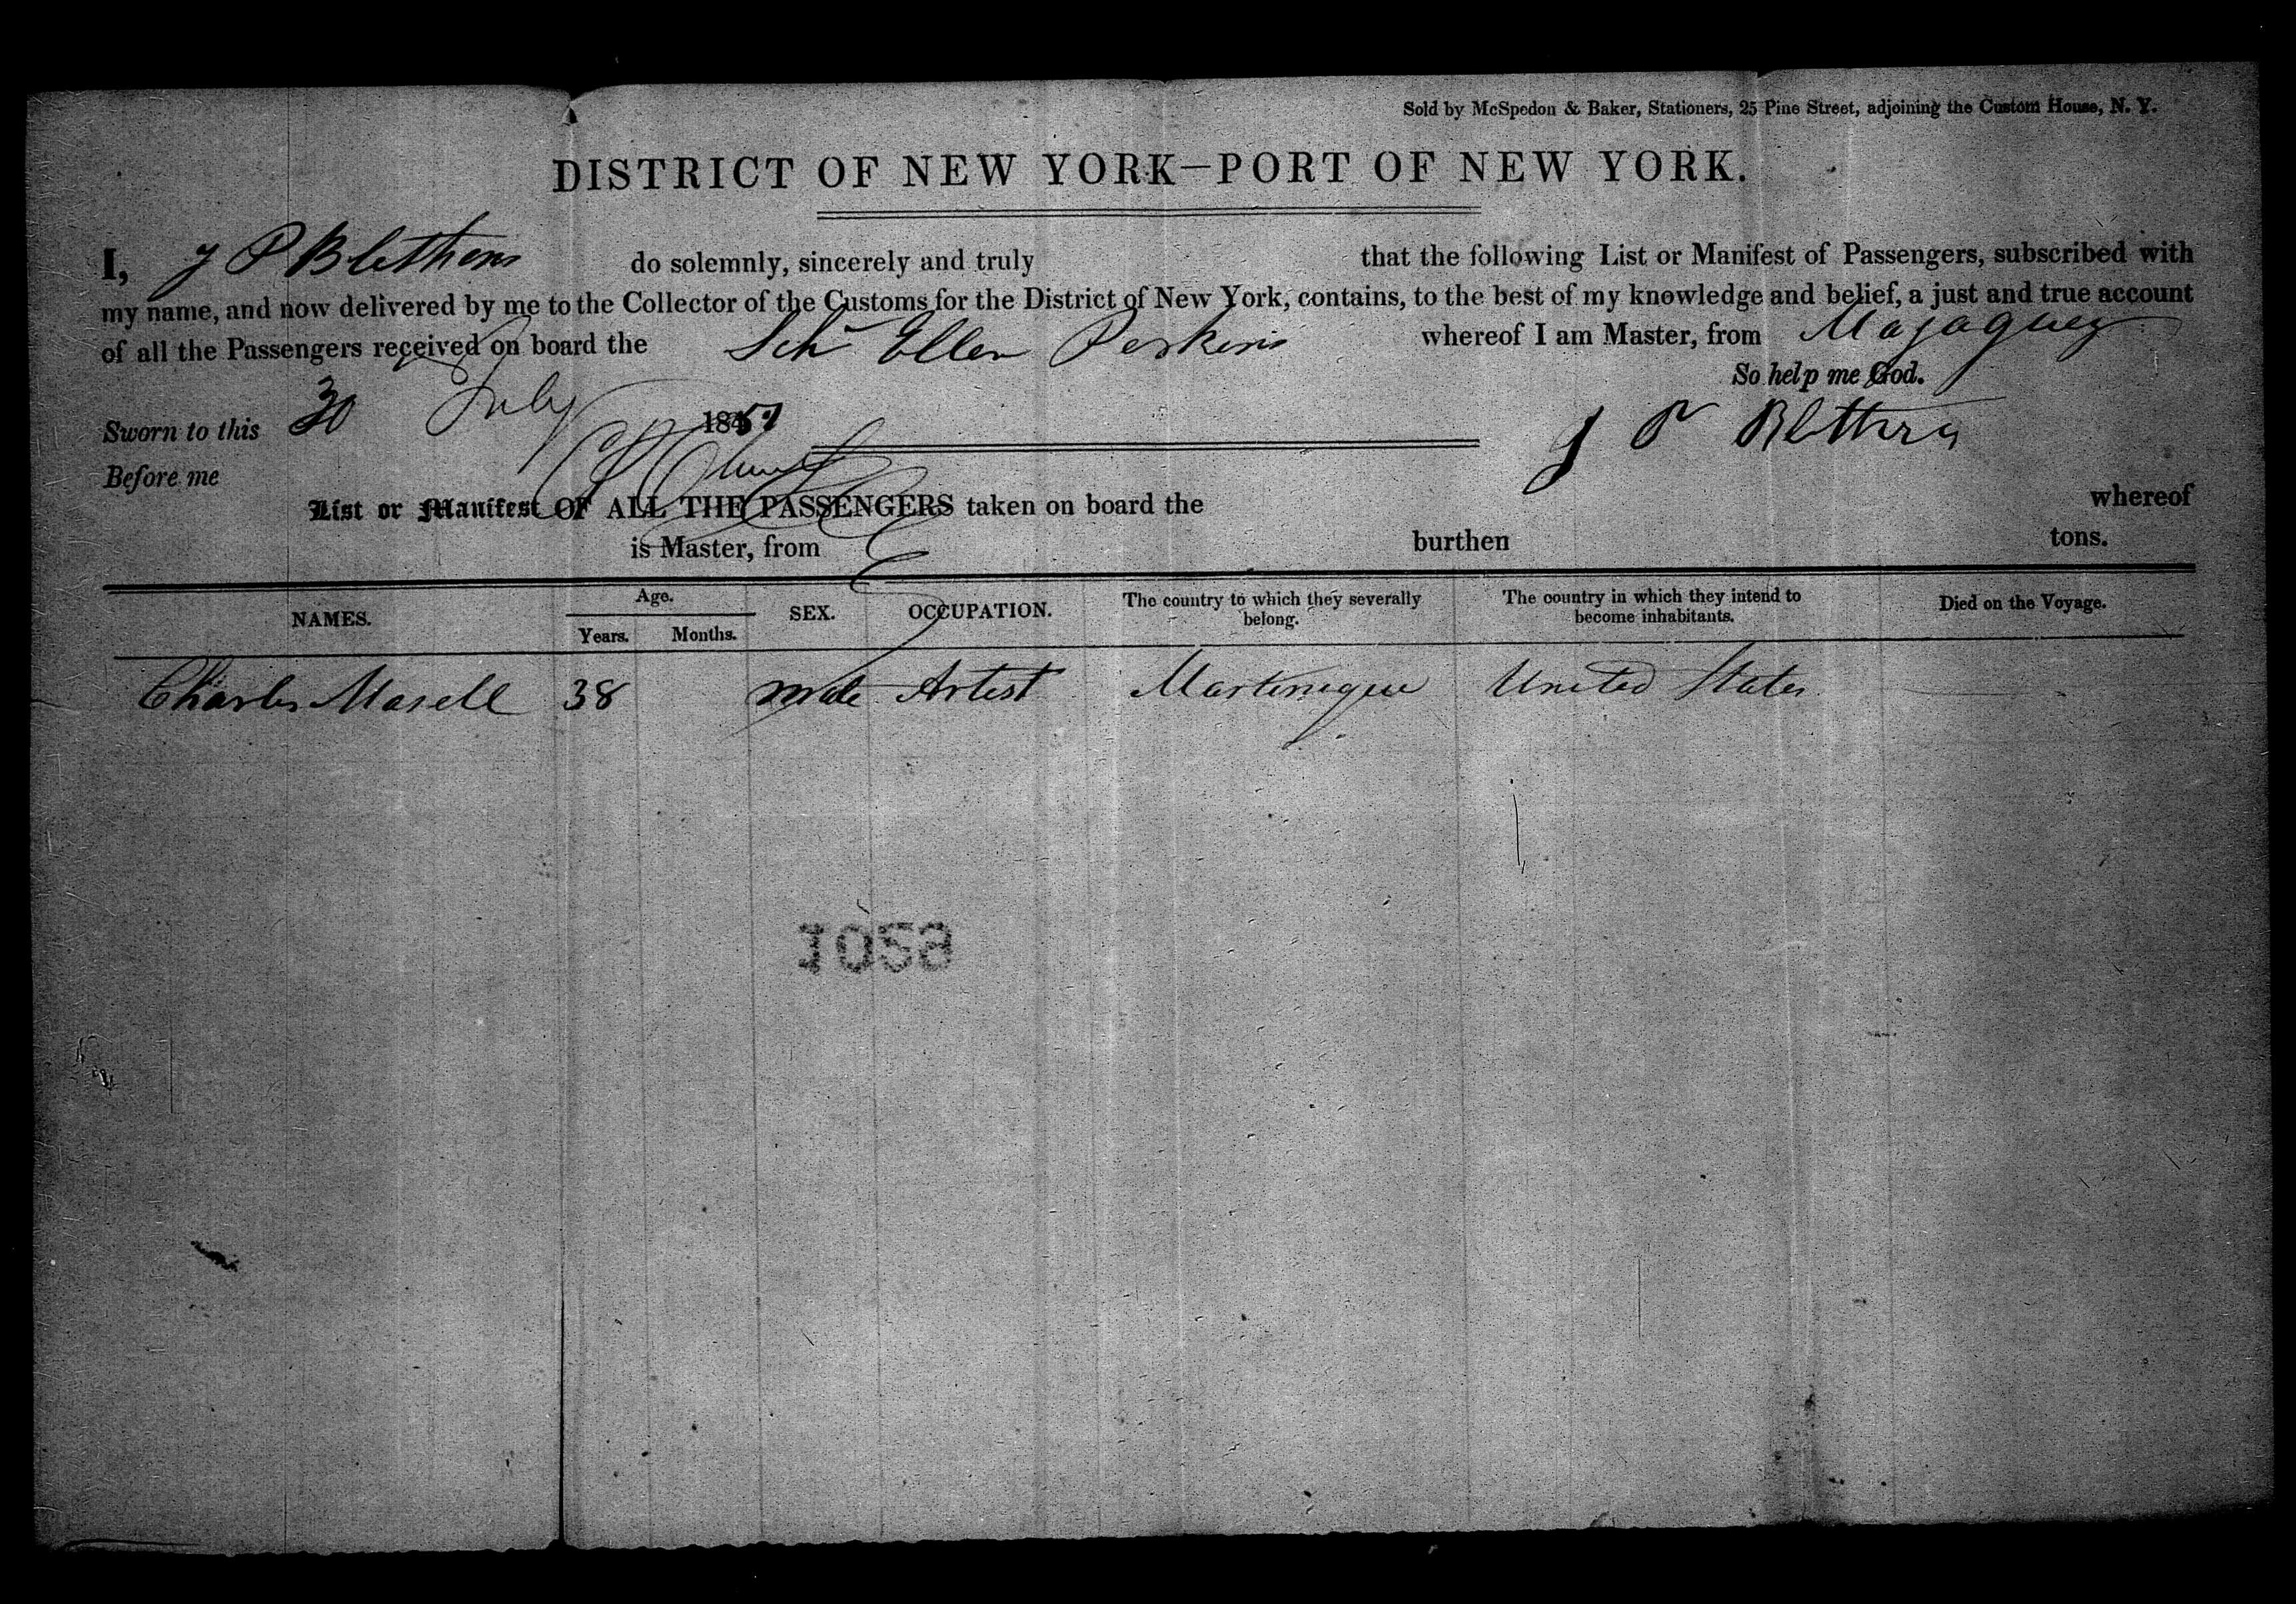 Sold by McSpedon & Baker, Stationers, 25 Pine Street, adjoining the Custom House, N. Y.
DISTRICT OF NEW YORK—PORT OF NEW YORK.
I, J P Blethens do solemnly, sincerely and truly that the following List or Manifest of Passengers, subscribed with
my name, and now delivered by me to the Collector of the Customs for the District of New York, contains, to the best of my knowledge and belief, a just and true account
of all the Passengers received on board the Schr Ellen Perkins whereof I am Master, from Majaguez
So help me God.
Sworn to this 30 July 1851 J P
Before me
List or Manifest OF ALL THE PASSENGERS taken on board the whereof
is Master, from burthen tons.
NAMES. Age. Years. Months. SEX. OCCUPATION. The country to which they severally belong. The country in which they intend to become inhabitants. Died on the Voyage.
Charles Masell 38 male Artist Martinique United States
1029